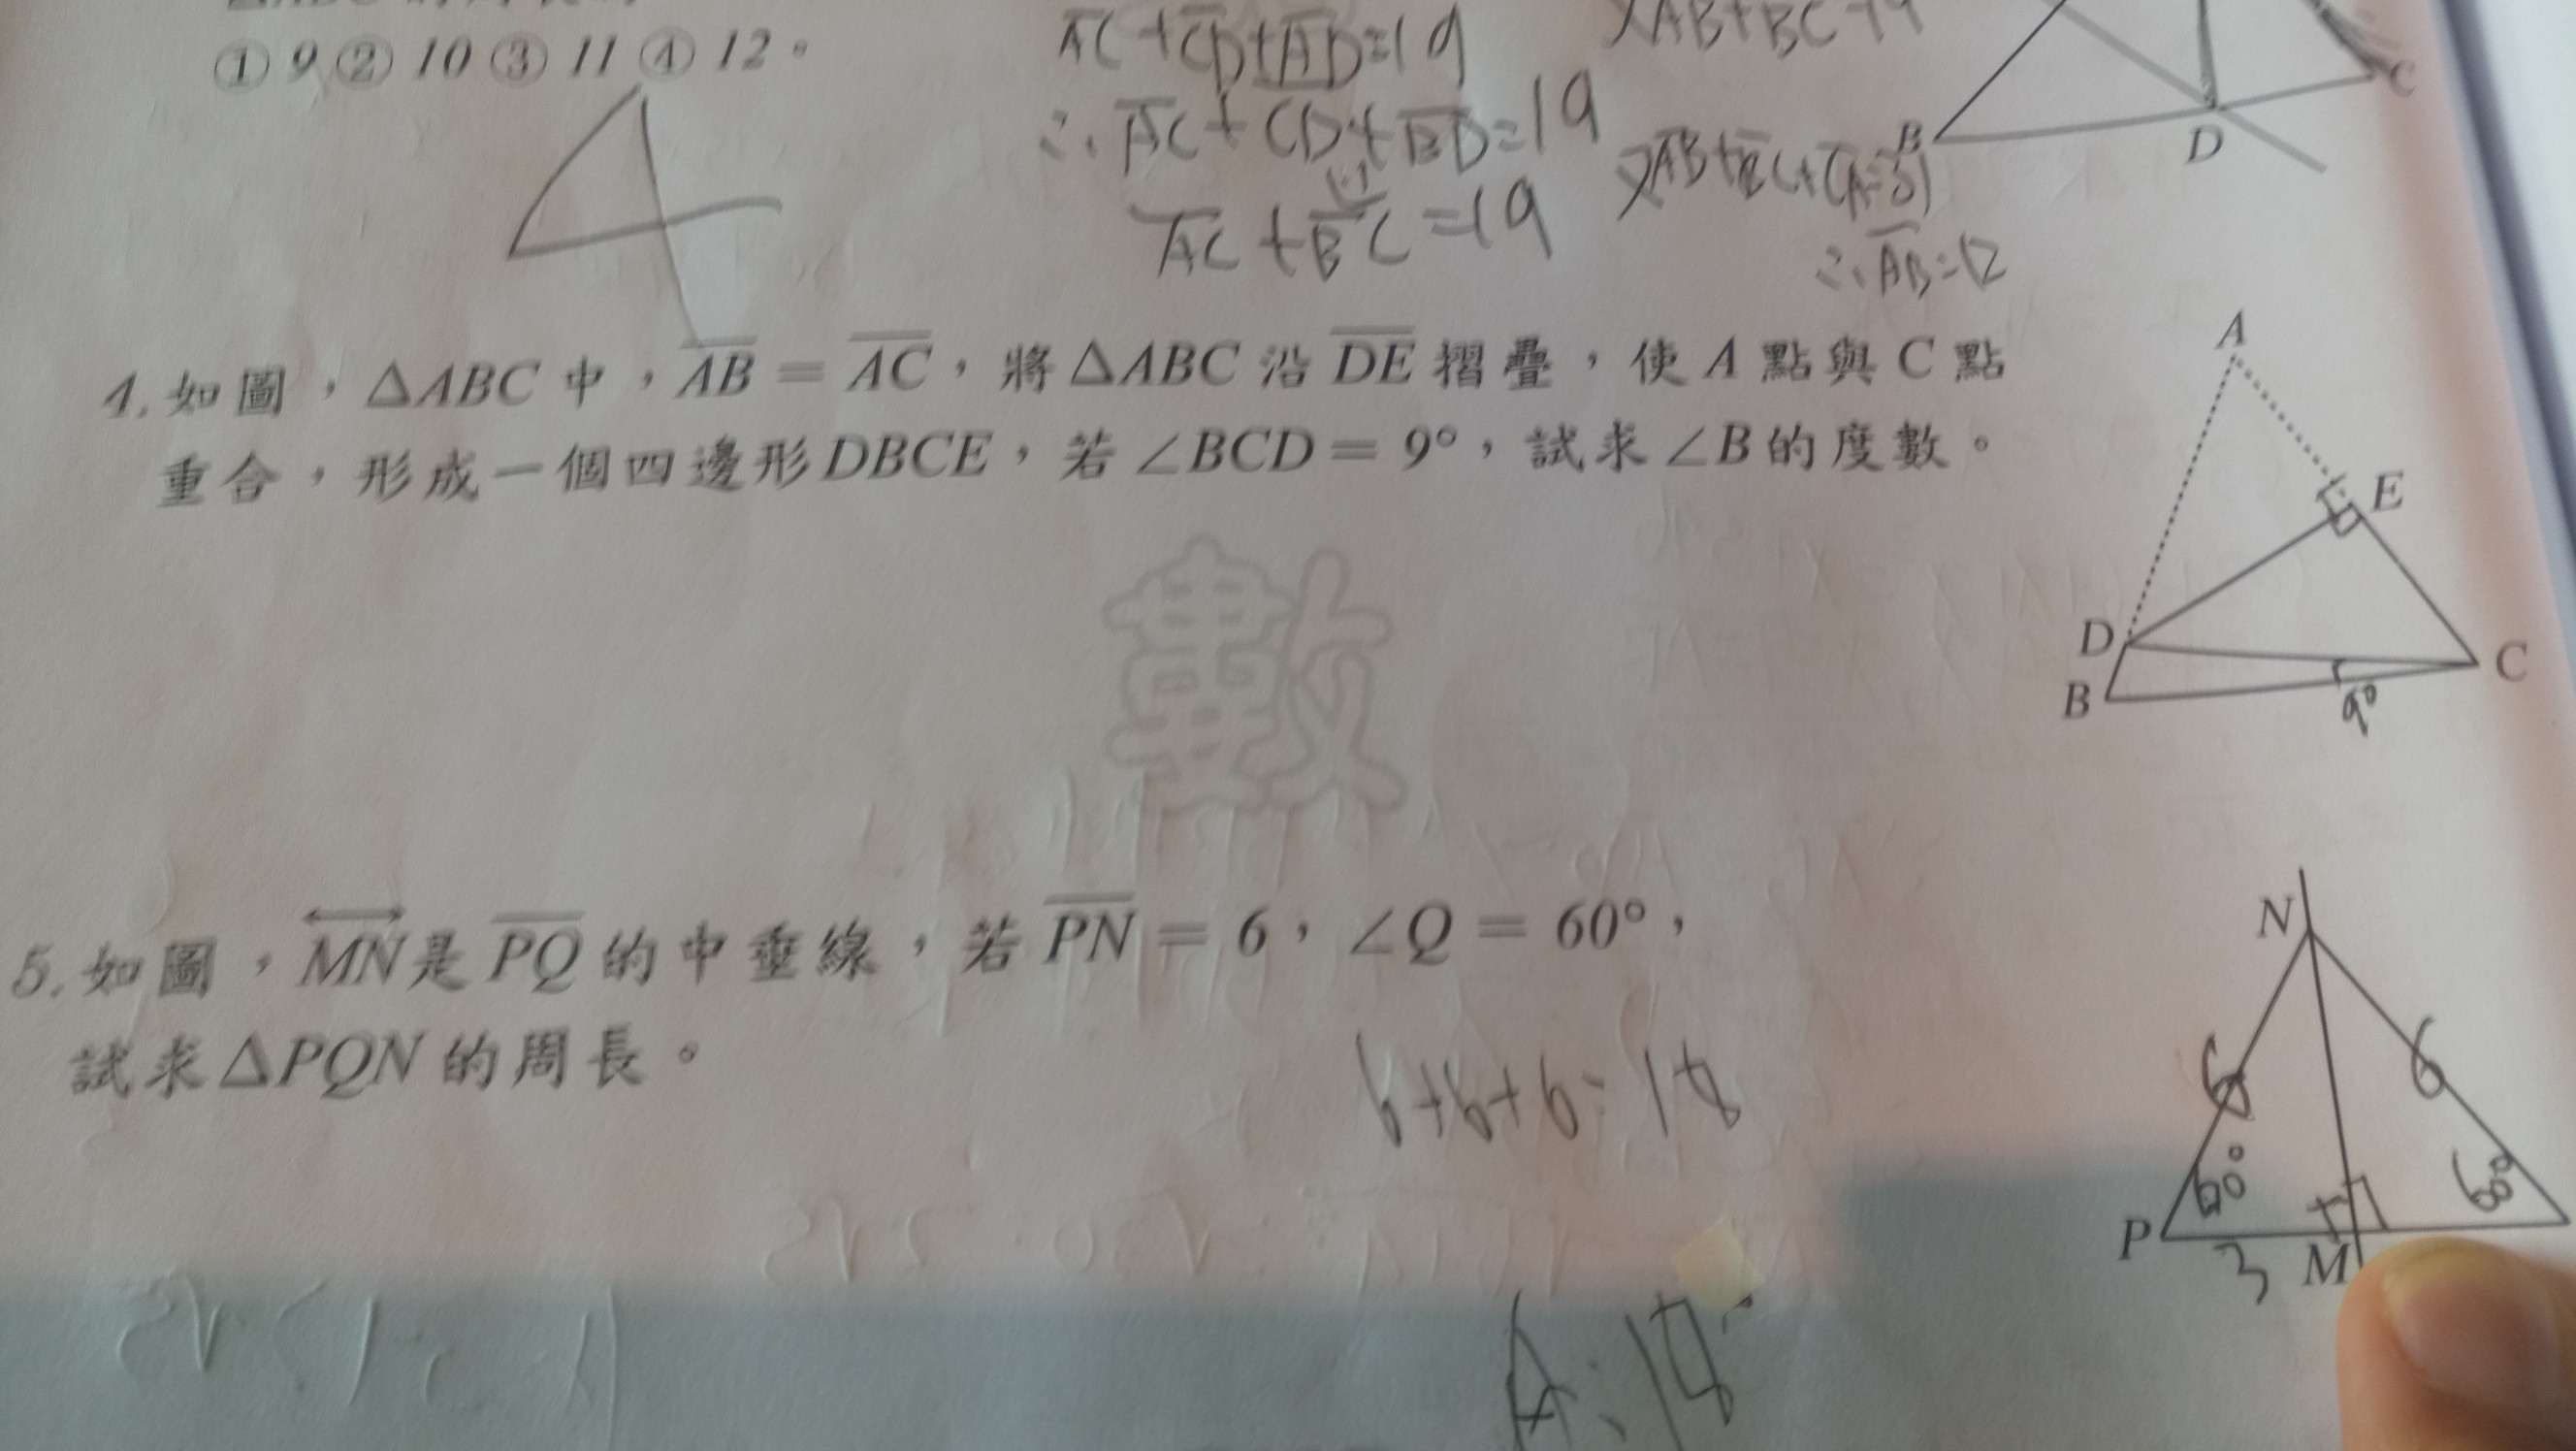 ① 9 ② 10 ③ 11 ④ 12。
AC+CD+AD=19
∴AC+CD+BD=19
AC+BC=19
又AB+BC+CA=31
∴AB=12
B
D
C
4.如圖，△ABC中，AB = AC，將△ABC沿DE摺疊，使A點與C點
重合，形成一個四邊形DBCE，若∠BCD = 9°，試求∠B的度數。
A
E
D
C
B
9°
數
5.如圖，MN是PQ的中垂線，若PN = 6，∠Q = 60°，
試求△PQN的周長。
6+6+6=18
N
6
6
60°
60°
P
3
M
A:18